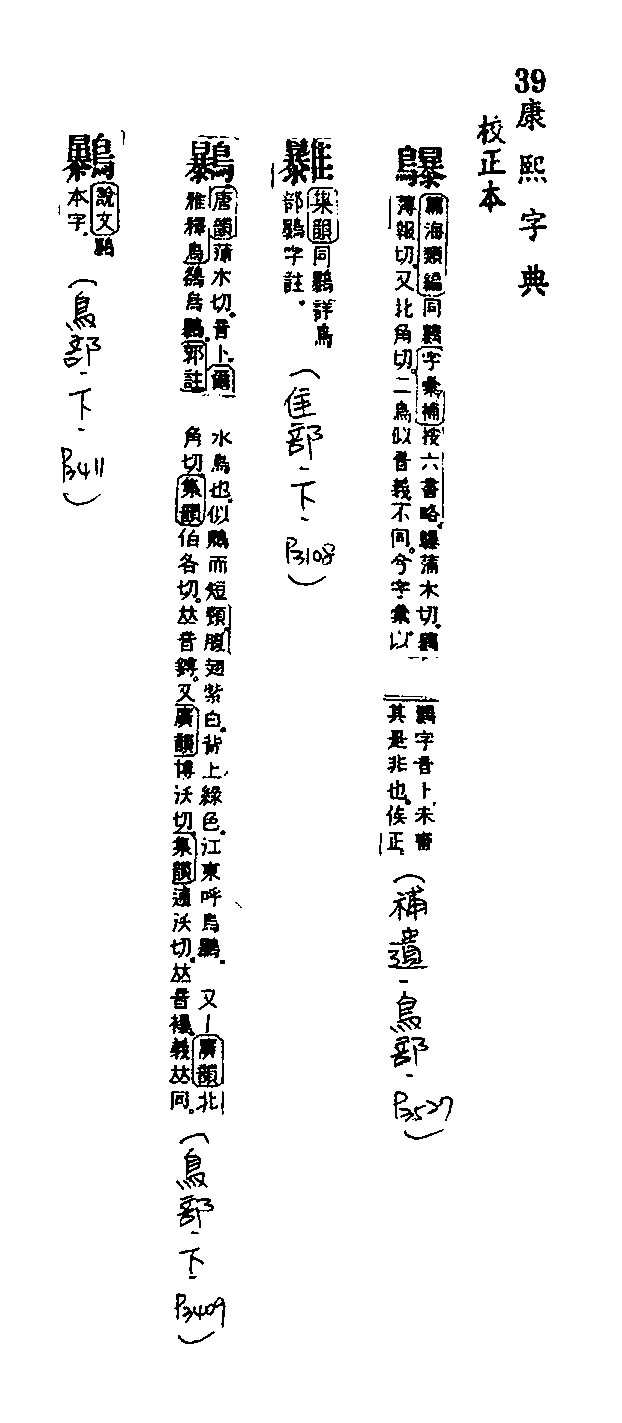 39康熙字典
校正本
篇海類編同鸔字彙補按六書略鸔蒲木切鸔
薄報切又北角切二鳥似音義不同今字彙以
鸔字音卜未審
其是非也俟正
(補遺-鳥部-P3527)
集韻同鸔詳鳥
部鸔字註
(隹部-下-P3108)
鸔
唐韻蒲木切音卜爾
雅釋鳥鷑烏鸔郭註
水鳥也似鶂而短頸腹翅紫白背上綠色江東呼烏鸔 又丨廣韻北
角切集韻伯各切𠀤音鎛又廣韻博沃切集韻逋沃切𠀤音襮義𠀤同
(鳥部-下-P3409)
說文鸔
本字
(鳥部-下-P3411)